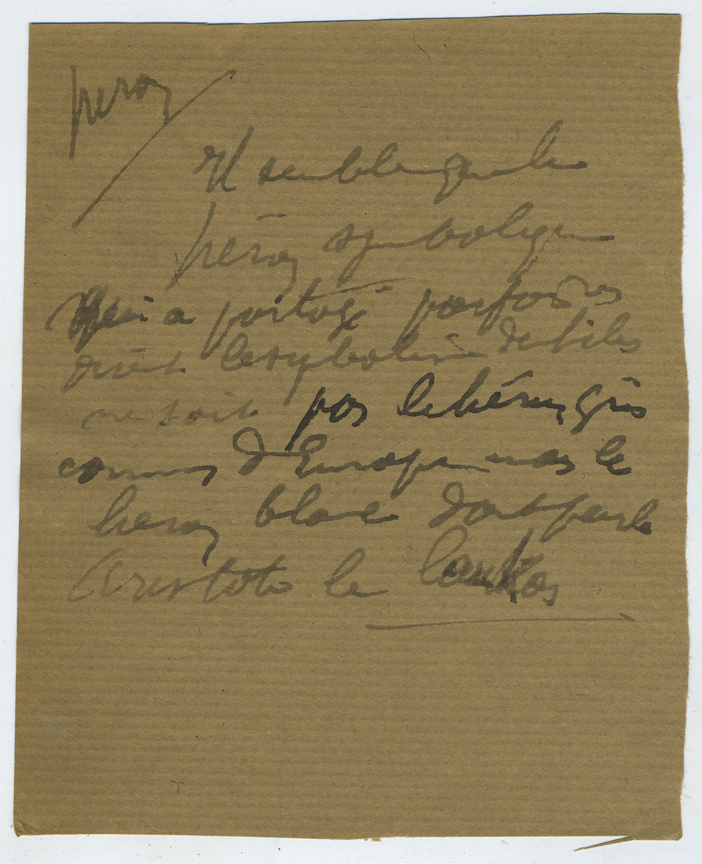 heron
Il semble que le
héron symbolique
a partagé parfois
le symbolisme
ne soit pas le héron gris
commun d'Europe mais le
heron blanc dont parle
Aristote le laukos